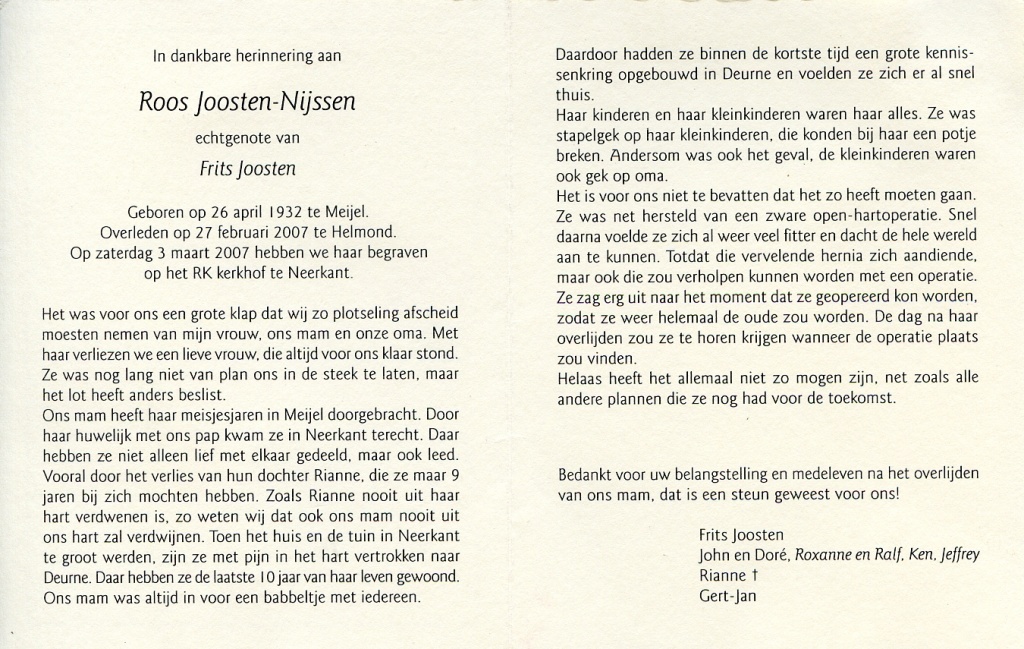 In dankbare herinnering aan
Roos Joosten-Nijssen
echtgenote van
Frits Joosten
Geboren op 26 april 1932 te Meijel.
Overleden op 27 februari 2007 te Helmond.
Op zaterdag 3 maart 2007 hebben we haar begraven
op het RK kerkhof te Neerkant.
Het was voor ons een grote klap dat wij zo plotseling afscheid
moesten nemen van mijn vrouw, ons mam en onze oma. Met
haar verliezen we een lieve vrouw, die altijd voor ons klaar stond.
Ze was nog lang niet van plan ons in de steek te laten, maar
het lot heeft anders beslist.
Ons mam heeft haar meisjesjaren in Meijel doorgebracht. Door
haar huwelijk met ons pap kwam ze in Neerkant terecht. Daar
hebben ze niet alleen lief met elkaar gedeeld, maar ook leed.
Vooral door het verlies van hun dochter Rianne, die ze maar 9
jaren bij zich mochten hebben. Zoals Rianne nooit uit haar
hart verdwenen is, zo weten wij dat ook ons mam nooit uit
ons hart zal verdwijnen. Toen het huis en de tuin in Neerkant
te groot werden, zijn ze met pijn in het hart vertrokken naar
Deurne. Daar hebben ze de laatste 10 jaar van haar leven gewoond.
Ons mam was altijd in voor een babbeltje met iedereen.
Daardoor hadden ze binnen de kortste tijd een grote kennis-
senkring opgebouwd in Deurne en voelden ze zich er al snel
thuis.
Haar kinderen en haar kleinkinderen waren haar alles. Ze was
stapelgek op haar kleinkinderen, die konden bij haar een potje
breken. Andersom was ook het geval, de kleinkinderen waren
ook gek op oma.
Het is voor ons niet te bevatten dat het zo heeft moeten gaan.
Ze was net hersteld van een zware open-hartoperatie. Snel
daarna voelde ze zich al weer veel fitter en dacht de hele wereld
aan te kunnen. Totdat die vervelende hernia zich aandiende,
maar ook die zou verholpen kunnen worden met een operatie.
Ze zag erg uit naar het moment dat ze geopereerd kon worden,
zodat ze weer helemaal de oude zou worden. De dag na haar
overlijden zou ze te horen krijgen wanneer de operatie plaats
zou vinden.
Helaas heeft het allemaal niet zo mogen zijn, net zoals alle
andere plannen die ze nog had voor de toekomst.
Bedankt voor uw belangstelling en medeleven na het overlijden
van ons mam, dat is een steun geweest voor ons!
Frits Joosten
John en Doré, Roxanne en Ralf, Ken, Jeffrey
Rianne †
Gert-Jan